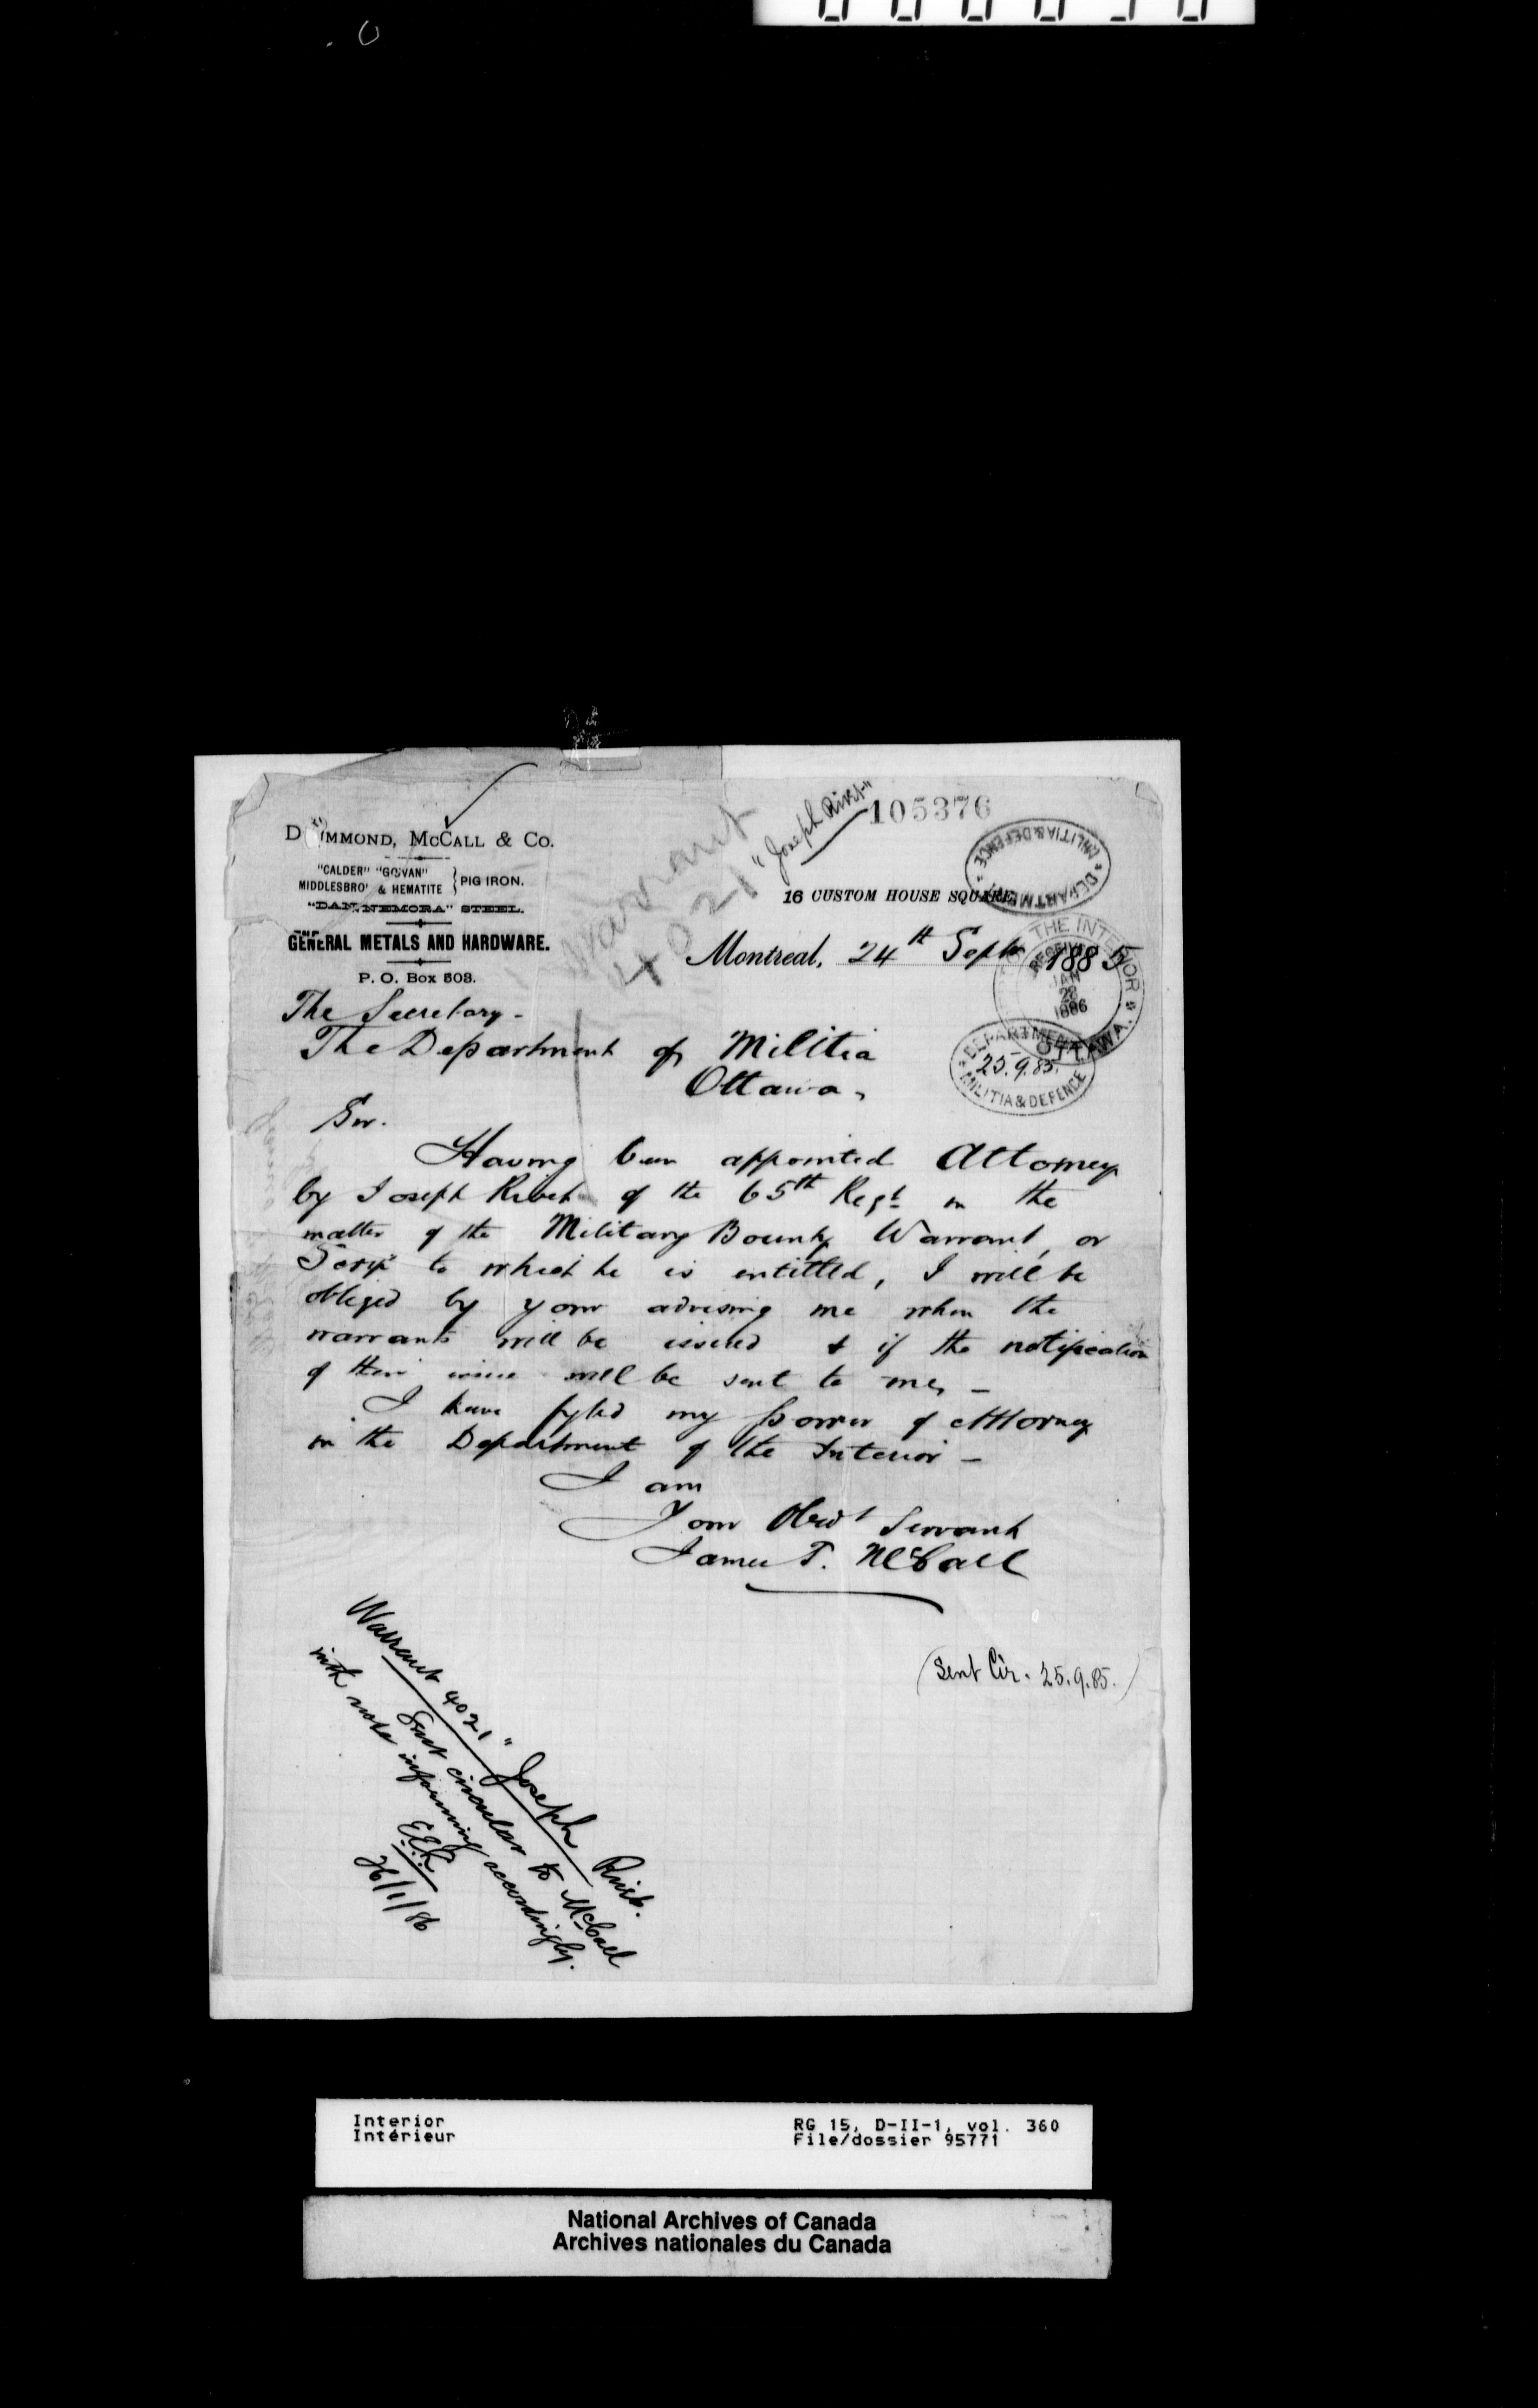 105376
"Joseph Rivet"
Warrant
4021
DRUMMOND, MCCALL & CO.
"CALDER" "GOVAN"
MIDDLESBRO' & HEMATITE } PIG IRON.
"DANNEMORA" STEEL.
GENERAL METALS AND HARDWARE.
P. O. Box 508.
DEPARTMENT MILITIA & DEFENCE
16 CUSTOM HOUSE SQUARE
Montreal, 24th Sept 1885
THE INTERIOR OTTAWA.
RECEIVED
JAN
1886
DEPARTMENT
25.9.85.
MILITIA & DEFENCE
The Secretary -
The Department of Militia
Ottawa,
Sir.
Having been appointed Attorney
by Joseph Rivet of the 65th Regt in the
matter of the Military Bounty Warrant, or
Scrip to which he is entitled, I will be
obliged by your advising me when the
warrants will be issued & if the notification
of their issue will be sent to me, -
I have fyled my power of Attorney
in the Department of the Interior -
I am
Your Obedt Servant
James T. McCall
(Sent Cir. 25.9.85.)
Warrant 4021 " Joseph Rivet.
Sent circular to McCall
with note informing accordingly.
26/1/86
Interior
Intérieur
RG 15, D-II-1, vol. 360
File/dossier 95771
National Archives of Canada
Archives nationales du Canada